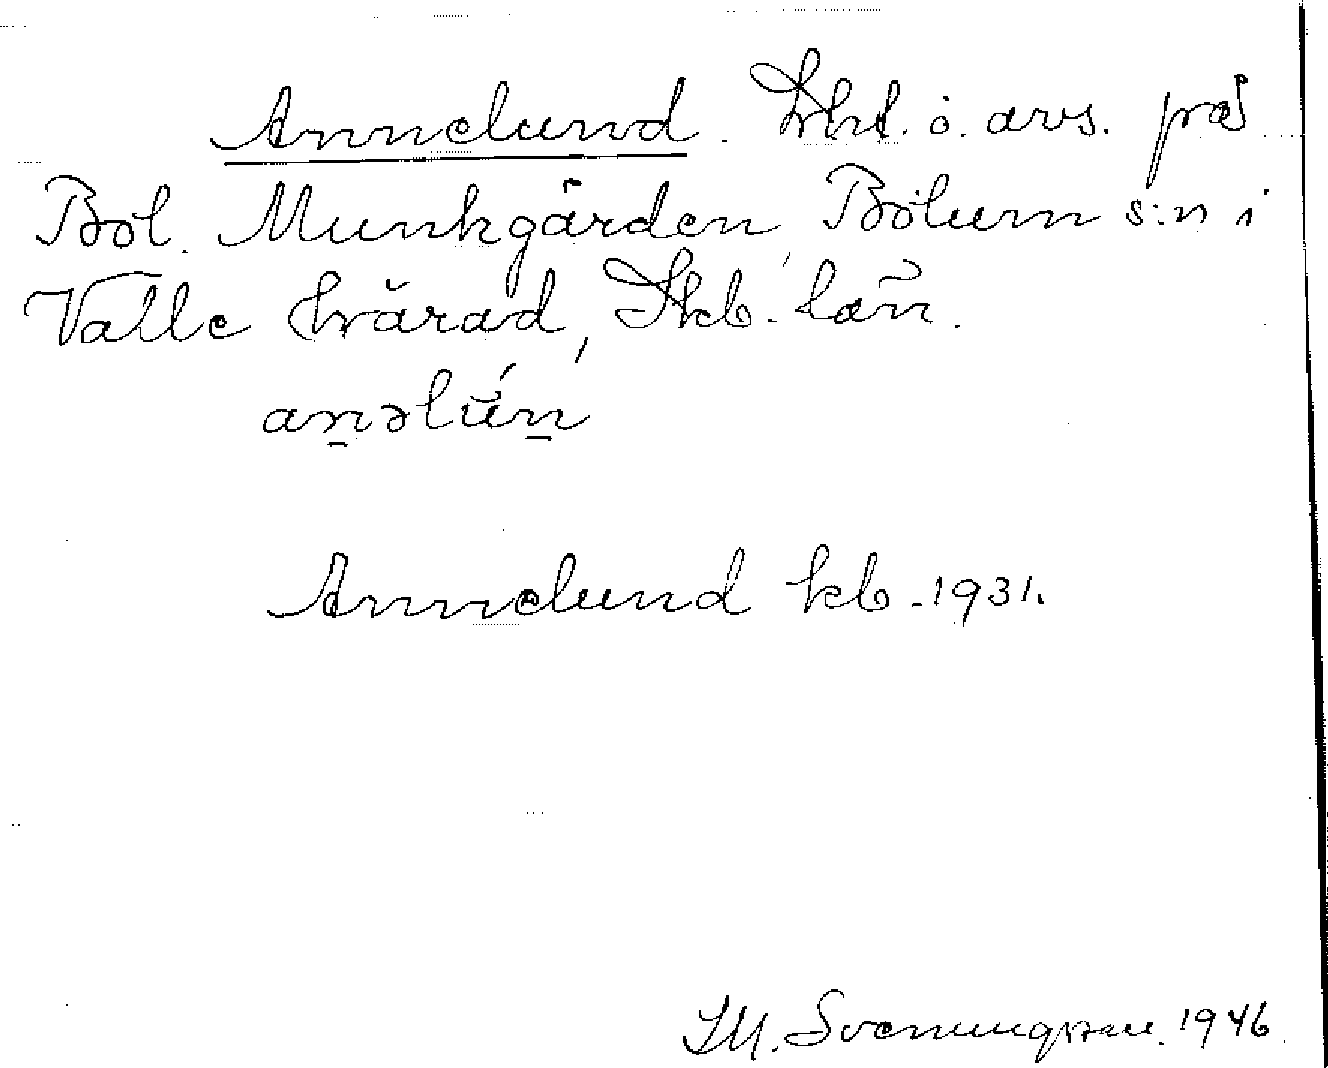 Annelund. Lht. o. avs. på
Böl. Munkgården, Bölum s:n i
Valle härad, Skb. län.
anəlún
Annelund kb. 1931.
M. Svenungsson. 1946.